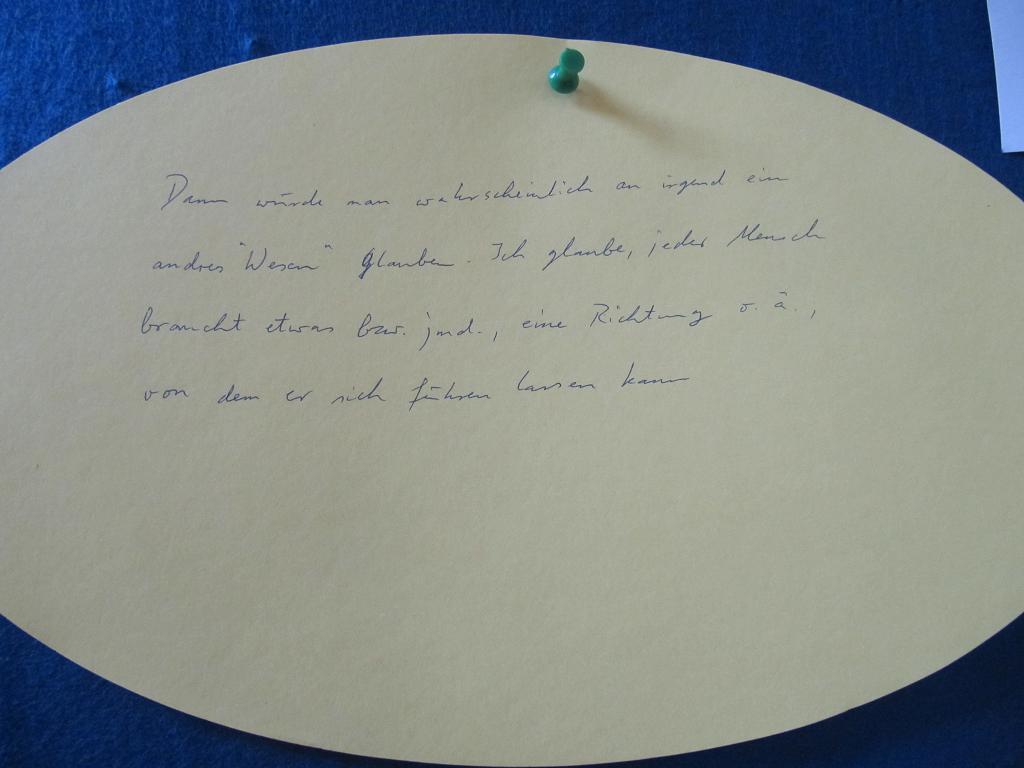 Dann würde man wahrscheinlich an irgend ein
andres "Wesen" Glauben. Ich glaube, jeder Mensch
braucht etwas bzw. jmd., eine Richtung o. ä.,
von dem er sich führen lassen kann